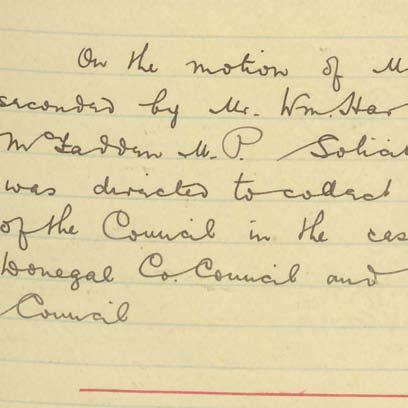 On the motion of M
seconded by Mr. Wm. Har
McFadden M.P. Solicit
was directed to collect
of the Council in the cas
Donegal Co. Council and
Council